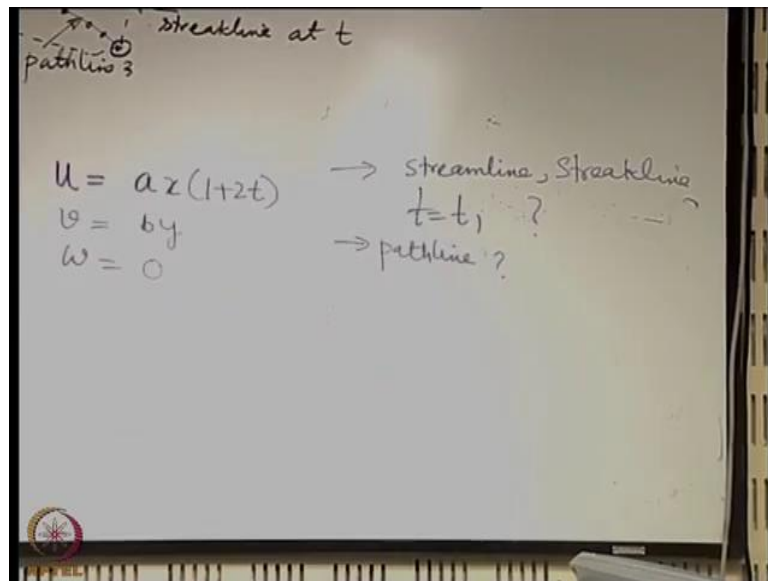 streakline at t
pathline 3
u = ax(1+2t) → streamline, Streakline
v = by t = t₁ ? ?
w = 0 → pathline ?